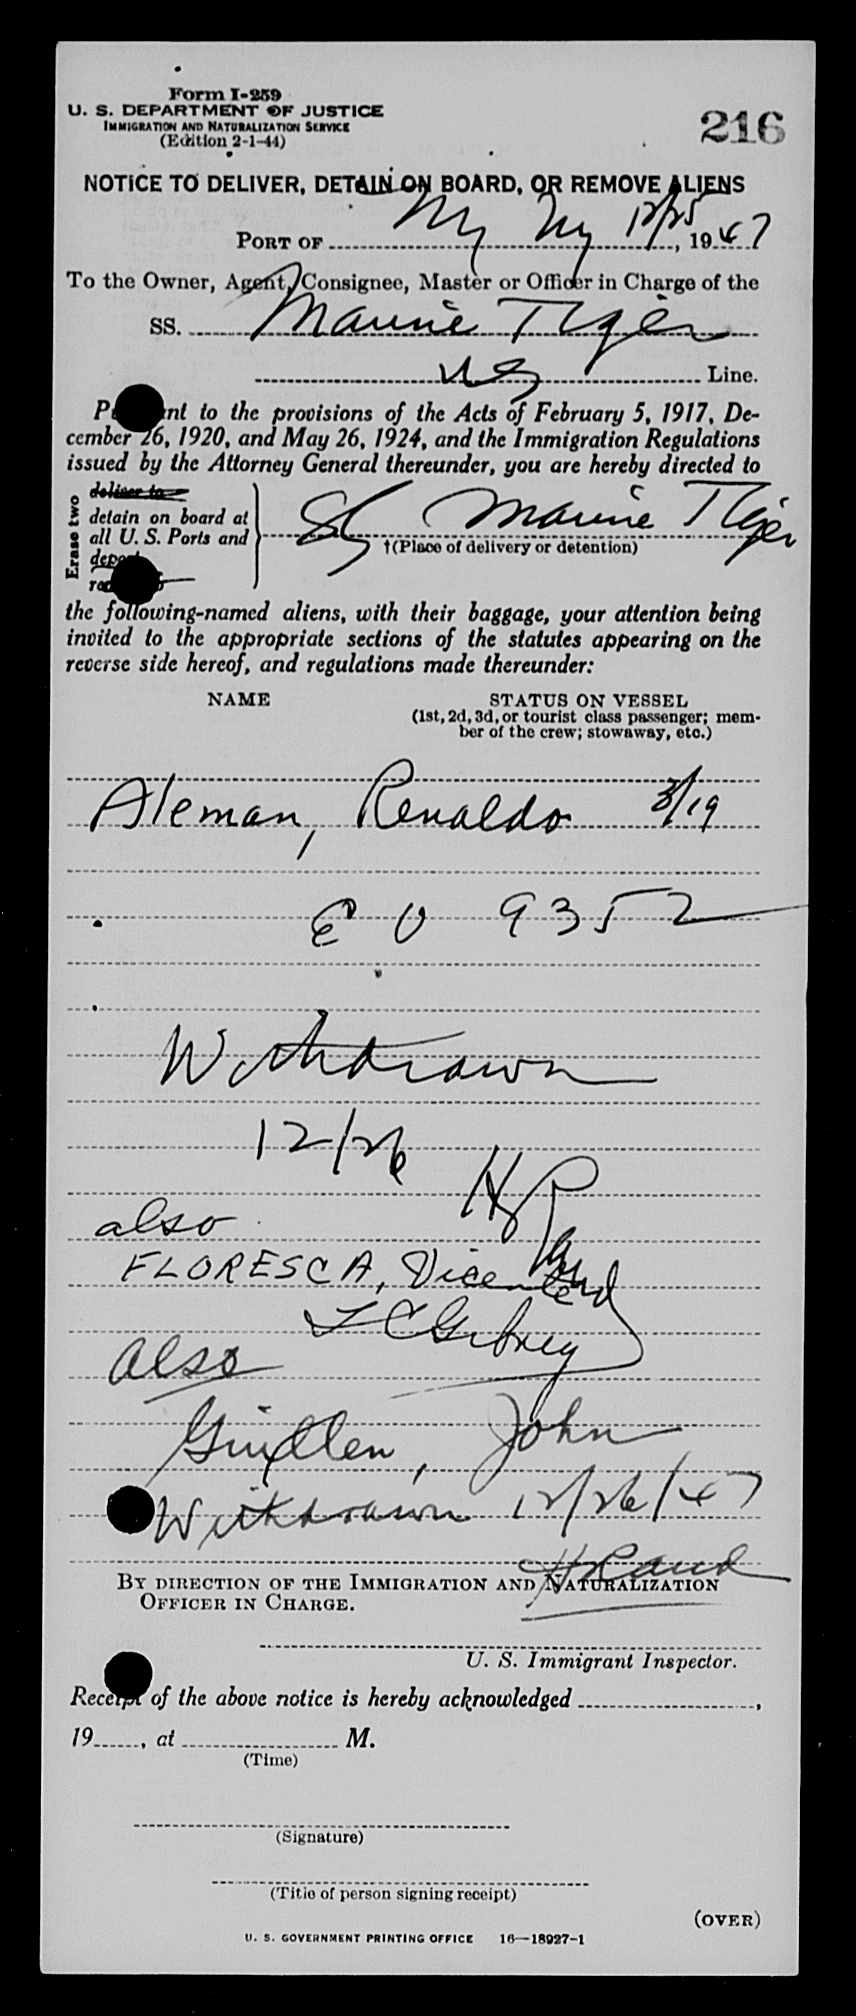 Form I-259
U. S. DEPARTMENT OF JUSTICE
IMMIGRATION AND NATURALIZATION SERVICE
(Edition 2-1-44)
216
NOTICE TO DELIVER, DETAIN ON BOARD, OR REMOVE ALIENS
PORT OF Ny Ny 12/25, 1947
To the Owner, Agent, Consignee, Master or Officer in Charge of the
SS. Marine Tiger
Line.
to the provisions of the Acts of February 5, 1917, De-
cember 26, 1920, and May 26, 1924, and the Immigration Regulations
issued by the Attorney General thereunder, you are hereby directed to
Erase two
deliver to
detain on board at
all U. S. Ports and
SS Marine Tiger
†(Place of delivery or detention)
the following-named aliens, with their baggage, your attention being
invited to the appropriate sections of the statutes appearing on the
reverse side hereof, and regulations made thereunder:
NAME
STATUS ON VESSEL
(1st, 2d, 3d, or tourist class passenger; mem-
ber of the crew; stowaway, etc.)
Aleman, Renaldo 3/19
E O 9352
Withdrawn
12/26
H Rand
also
FLORESCA, Vicente
also
John
Withdrawn 12/26/47
H Rand
BY DIRECTION OF THE IMMIGRATION AND NATURALIZATION
OFFICER IN CHARGE.
U. S. Immigrant Inspector.
Receipt of the above notice is hereby acknowledged ,
19 , at M.
(Time)
(Signature)
(Title of person signing receipt)
(OVER)
U. S. GOVERNMENT PRINTING OFFICE 16—18927-1